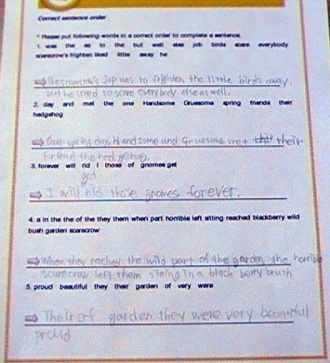 Correct sentence order
* Please put following words in a correct order to complete a sentence.
1. was the as to the but well else job birds scare everybody
scarecrow's frighten liked little away he
The scarecrow's Job was to frighten the little birds away,
but he liked to scare everybody else as well.
2. day and met the one Handsome Gruesome spring friends their
hedgehog
One spring day, Handsome and Gruesome met their
friend the hedgehog.
3. forever will rid I those of gnomes get
get
I will rid those gnomes forever.
4. a in the the of the they them when part horrible left sitting reached blackberry wild
bush garden scarecrow
When they reached the wild part of the garden, the horrible
scarecrow left them siteing in a black berry brush
5. proud beautiful they their garden of very were
Their of garden they were very beautiful
proud